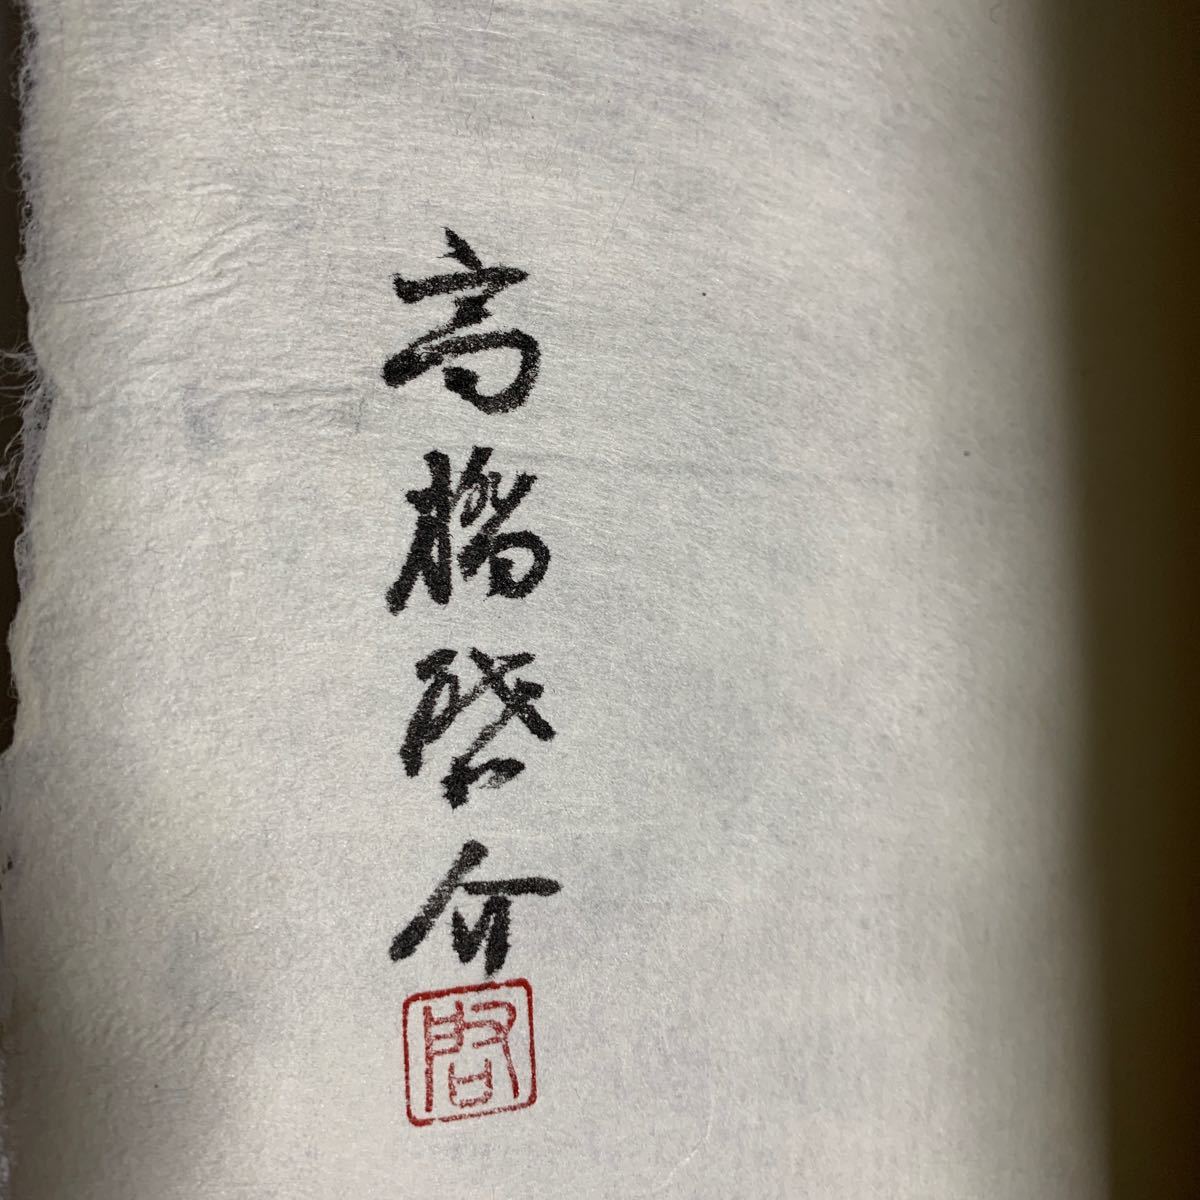 高橋啓介
啓